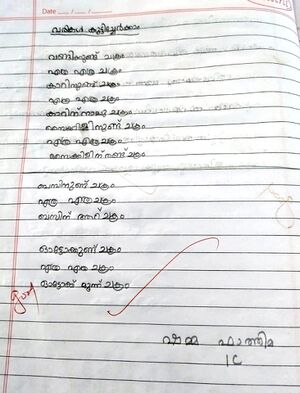 Date
വരികൾ കൂട്ടിച്ചേർക്കാം
വണ്ടിക്കുണ്ട് ചക്രം
എത്ര എത്ര ചക്രം
കാറിനുണ്ട് ചക്രം
എത്ര എത്ര ചക്രം
കാറിന് നാലു ചക്രം
സൈക്കിളിനുണ്ട് ചക്രം
എത്ര എത്ര ചക്രം
സൈക്കിളിന് രണ്ട് ചക്രം
ബസിനുണ്ട് ചക്രം
എത്ര എത്ര ചക്രം
ബസിന് ആറ് ചക്രം
ഓട്ടോക്കുണ്ട് ചക്രം
എത്ര എത്ര ചക്രം
ഓട്ടോക്ക് മൂന്ന് ചക്രം
Good
ഫാത്തിമ
1C